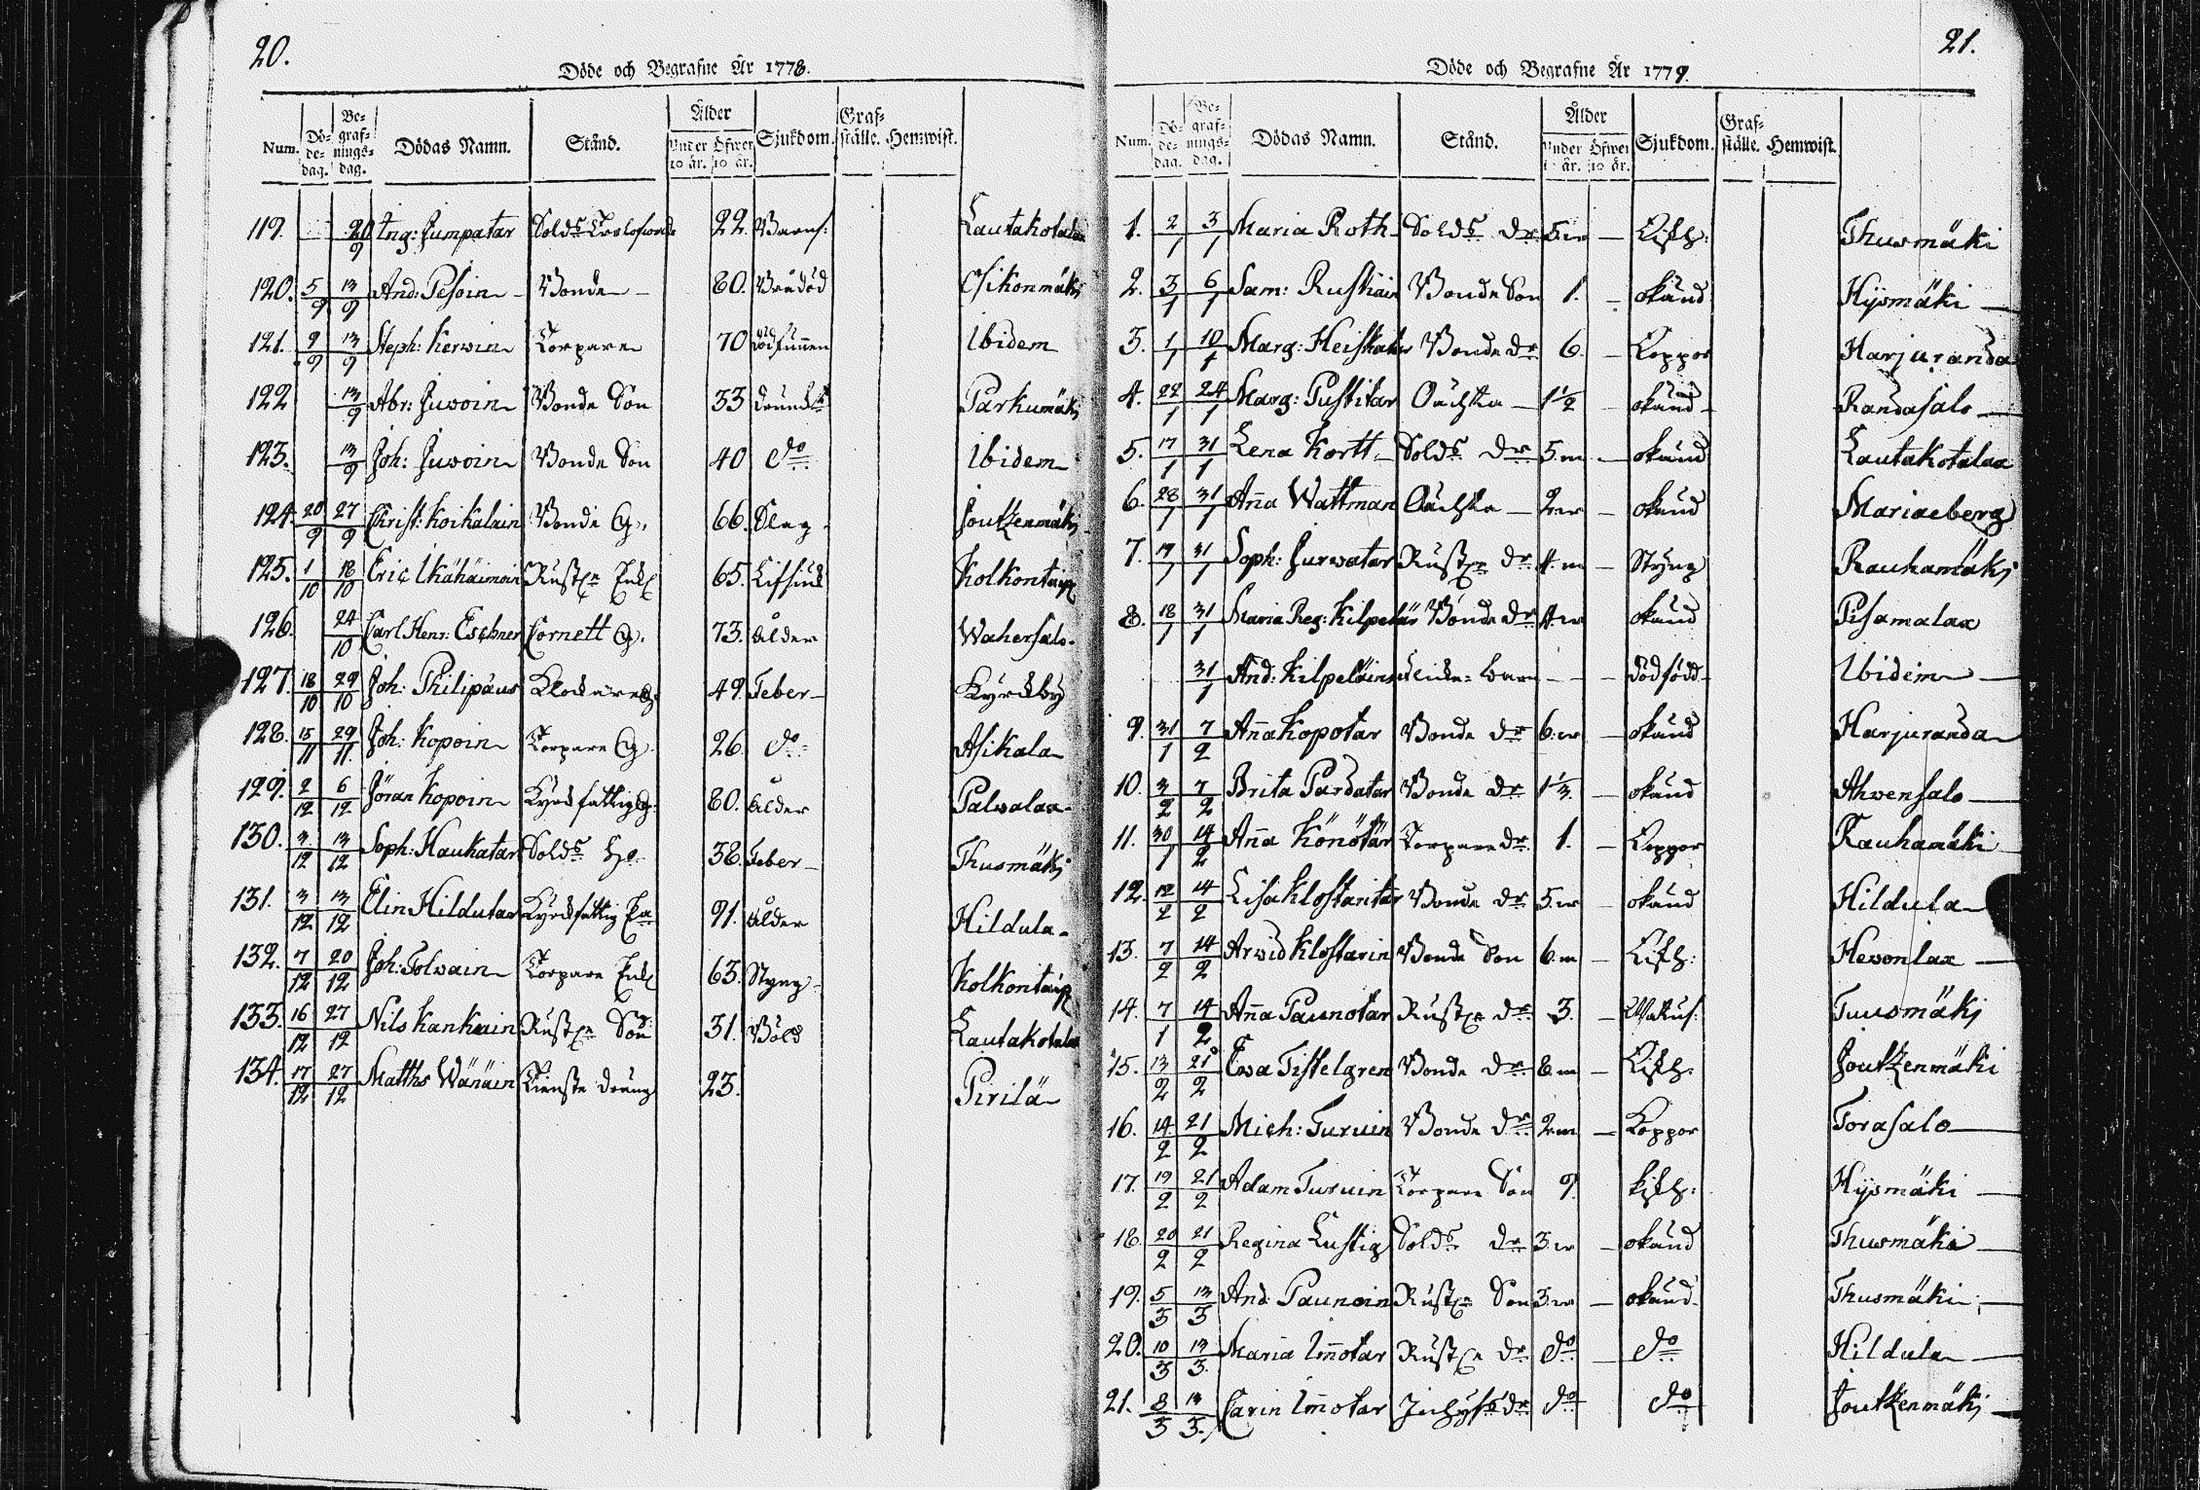 20.
Döde och Begrafne År 1778.
Num. Döde-dag. Begrafnings-dag. Dödas Namn. Stånd. Ålder Under 10 år. Öfwer 10 år. Sjukdom. Graf-ställe. Hemwist.
119. 20/9 Ing: Jumpatar Sold: 22. Barns: Lautakotalax
120. 5/9 13/9 And: Pesoin Bonde 80. Brådöd Asikonmäki
121. 9/9 13/9 Steph: Kerwin Torpare 70 Ibidem
122 13/9 Abr: Juwoin Bonde Son 33 Drunck: Parkumäki
123. 13/9 Joh: Juwoin Bonde Son 40 do Ibidem
124 20/9 27/9 Christ: Koikalain Bonde G. 66. Slag Joutzenmäki
125. 1/10 18/10 Eric Ikähäimoin Rust. Enkl 65. Lifsiuk Kolkontaip
126. 24/10 Carl Henr: Eschner Cornett G. 73. ålder Wahersalo
127 18/10 29/10 Joh: Philipæus Klockare G 49. Feber Kyrckby
128. 15/11 29/11. Joh: Kopoin Torpare G 26. do Asikala
129. 2/12 6/12 Jöran Kopoin Kyrckfattig G. 80. ålder Palwalax
130. 3/12 13/12 Soph: Haukatar Solds H. 38. Feber Thusmäki
131. 3/12 13/12 Elin Hildutar Kyrckfattig Ea 91. ålder Hildula
132. 7/12 20/12 Joh: Tolwain Torpare Enkl 63. Styng Kolkontaip
133. 16/12 27/12 Nils Kankain Rust. Son 31. Böld Lautakotalax
134. 17/12 27/12 Matths Wänäin Tienste dräng 23. Pirilä
21.
Döde och Begrafne År 1779.
Num. Döde-dag. Begrafnings-dag. Dödas Namn. Stånd. Ålder Under 10 år. Öfwer 10 år. Sjukdom. Graf-ställe. Hemwist.
1. 2/1 3/1 Maria Roth Solds Dr 5.w — Thusmäki
2. 3/1 6/1 Sam: Ruskiain Bonde Son 1. — okänd Hysmäki
3. 1/1 10/1 Marg: Heiskatar Bonde dr 6. — Koppor Harjuranda
4. 22/1 24/1 Marg: Pustitar Oächta 1 1/2 — okänd Randasalo
5. 17/1 31/1 Lena Kortt Solds Dr 5.m — okänd Lautakotalax
6. 28/1 31/1 Anna Wattman Oächta 2.w — okänd Mariæberg
7. 19/1 31/1 Soph: Jurwatar Rust. Dr 4.m — Styng Rauhamäki
8. 18/1 31/1 Maria Reg: Kilpelär Bonde dr 4.w okänd Pisamalax
31/1 And: Kilpeläin — — — Dödfödd Ibidem
9. 31/1 7/2 Anna Kopotar Bonde Dr 6.w — okänd Harjuranda
10. 3/2 7/2 Brita Pardatar Bonde dr 1 1/3. — okänd Ahwensalo
11. 30/1 14/2 Anna Könötär Torpare dr. 1. — Koppor Rauhamäki
12. 12/2 14/2 Lisa Klostaritar Bonde Dr 5.w — okänd Hildula
13. 7/2 14/2 Arwid Klostarin Bonde Son 6.m — Hewonlax
14. 7/1 14/2 Anna Paunotar Rust. dr 3. — Tuusmäki
15. 13/2 21/2 Ewa Tistelgren Bonde Dr 8.m — Joutzenmäki
16. 14/2 21/2 Mich: Turuin Bonde Dr 2.m — Koppor Torasalo
17. 19/2 21/2 Adam Turuin Torpare Son 9. Hysmäki
18. 20/2 21/2 Regina Lustig Solds Dr 3.w — okänd Thusmäki
19. 5/3 13/3 And: Paunoin Rust. Son 3.w — okänd Thusmäki
20. 10/3 13/3. Maria Imotar Rust. Dr do — do Hildula
21. 8/3 13/3. Carin Imotar Inhyses dr do do Joutzenmäki